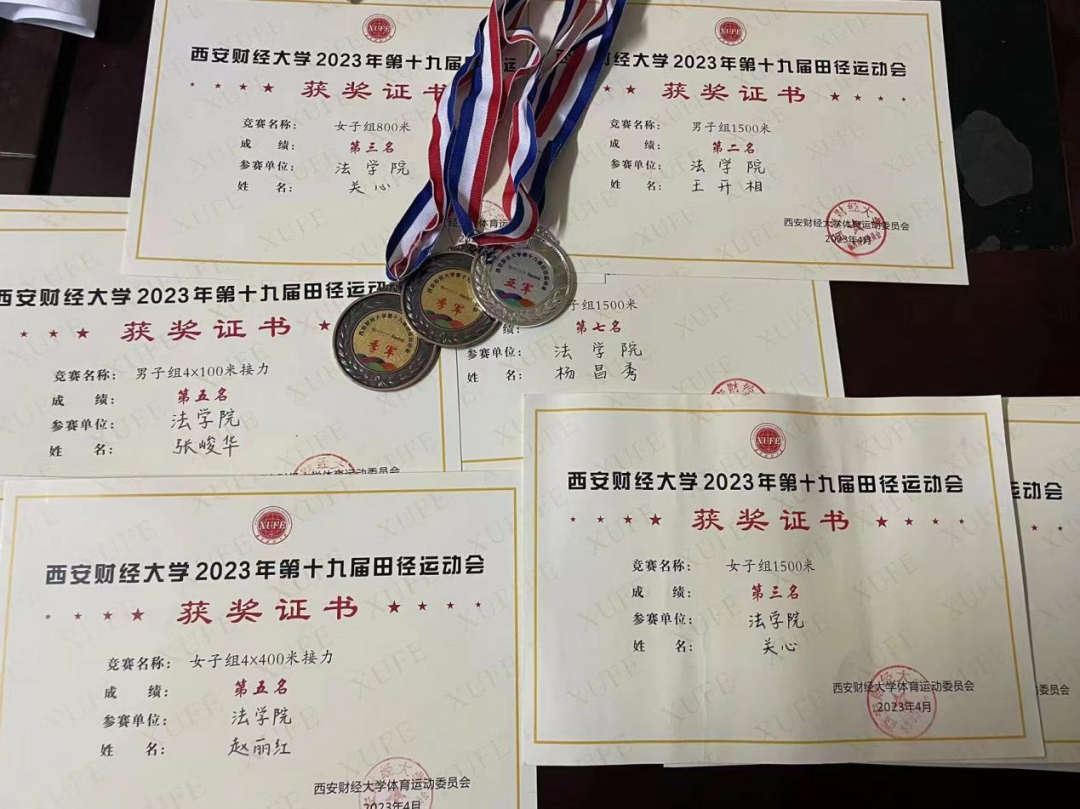 XUFE
西安财经大学2023年第十九届田径运
获奖证书
竞赛名称： 女子组800米
成 绩： 第三名
参赛单位： 法学院
姓 名： 关心
XUFE
财经大学2023年第十九届田径运动会
获奖证书
竞赛名称： 男子组1500米
成 绩： 第二名
参赛单位： 法学院
姓 名： 王开相
西安财经大学体育运动委员会
2023年4月
西安财经大学2023年第十九届田径运动
获奖证书
竞赛名称： 男子组4×100米接力
成 绩： 第五名
参赛单位： 法学院
姓 名： 张峻华
大学体育运动委员会
季军
季军
亚军
子组1500米
绩： 第七名
参赛单位： 法学院
姓 名： 杨昌秀
XUFE
西安财经大学2023年第十九届田径运动会
获奖证书
竞赛名称： 女子组4×400米接力
成 绩： 第五名
参赛单位： 法学院
姓 名： 赵丽红
西安财经大学体育运动委员会
2023年4月
XUFE
西安财经大学2023年第十九届田径运动会
获奖证书
竞赛名称： 女子组1500米
成 绩： 第三名
参赛单位： 法学院
姓 名： 关心
西安财经大学体育运动委员会
2023年4月
运动会
委员会